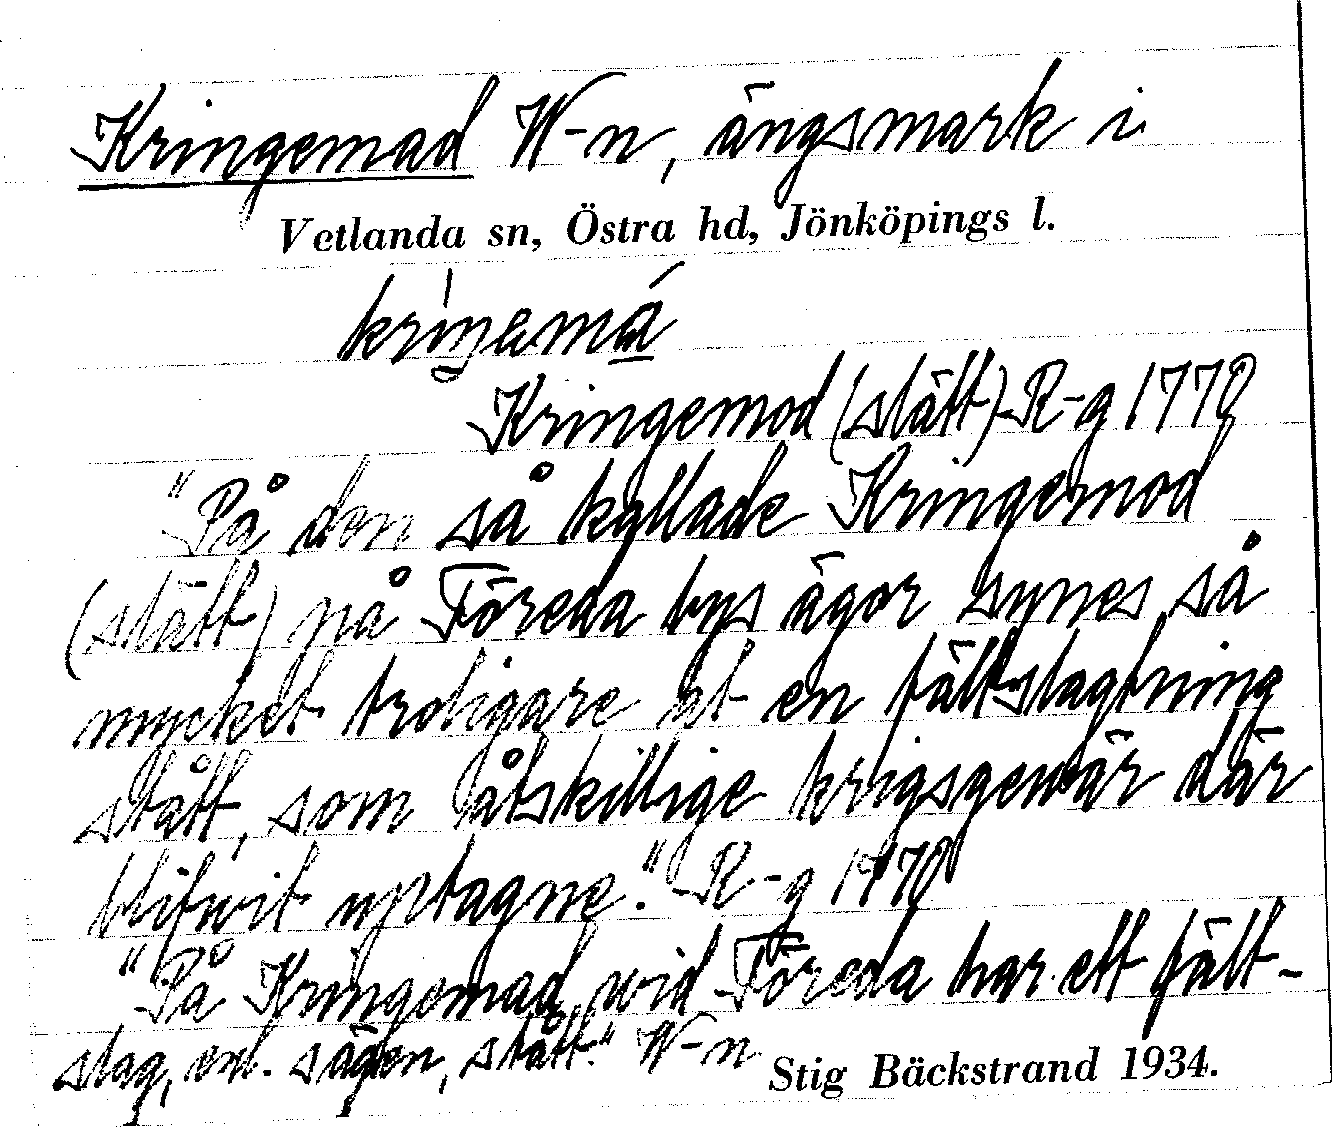 Kringemad W-n, ängsmark i
Vetlanda sn, Östra hd, Jönköpings l.
Kringemod (slätt) R-g 1770
"På den så kallade Kringemod
(slätt) på Föreda bys ägor synes så
mycket troligare at en fältslagtning
stått, som åtskillige krigsgewär där
blifwit uptagne." R-g 1770
"På Kringemad wid Föreda har ett fält-
slag, enl. sägen, stått." W-n
Stig Bäckstrand 1934.